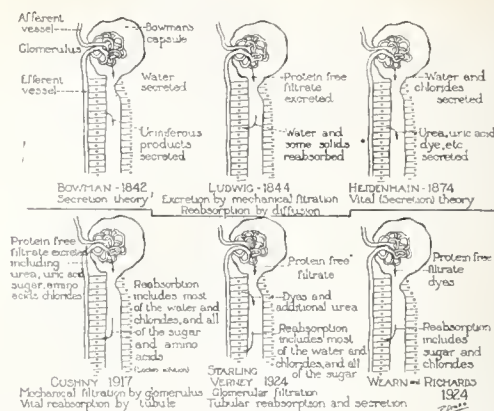 Afferent
vessel
Glomerulus
Efferent
vessel
Bowman's
capsule
Water
secreted
Uriniferous
products
secreted
BOWMAN - 1842
Secretion theory
Protein free
filtrate
excreted
Water and
some solids
reabsorbed
LUDWIG - 1844
Excretion by mechanical filtration
Reabsorption by diffusion
Water and
chlorides
secreted
Urea, uric acid
dye, etc,
secreted
HEIDENHAIN - 1874
Vital (Secretion) theory
Protein free
filtrate excreted
including
urea, uric acid
sugar, amino
acids chlorides
Reabsorbtion
includes most
of the water and
chlorides, and all
of the sugar
and amino
acids
CUSHNY 1917
Mechanical filtration by glomerulus
Vital reabsorption by tubule
Protein free
filtrate
Dyes and
additional urea
Reabsorption
includes most
of the water and
chlorides, and all
of the sugar
STARLING
VERNEY 1924
Glomerular filtration
Tubular reabsorption and secretion
Protein free
filtrate
dyes
Reabsorption
includes
sugar and
chlorides
WEARN and RICHARDS
1924